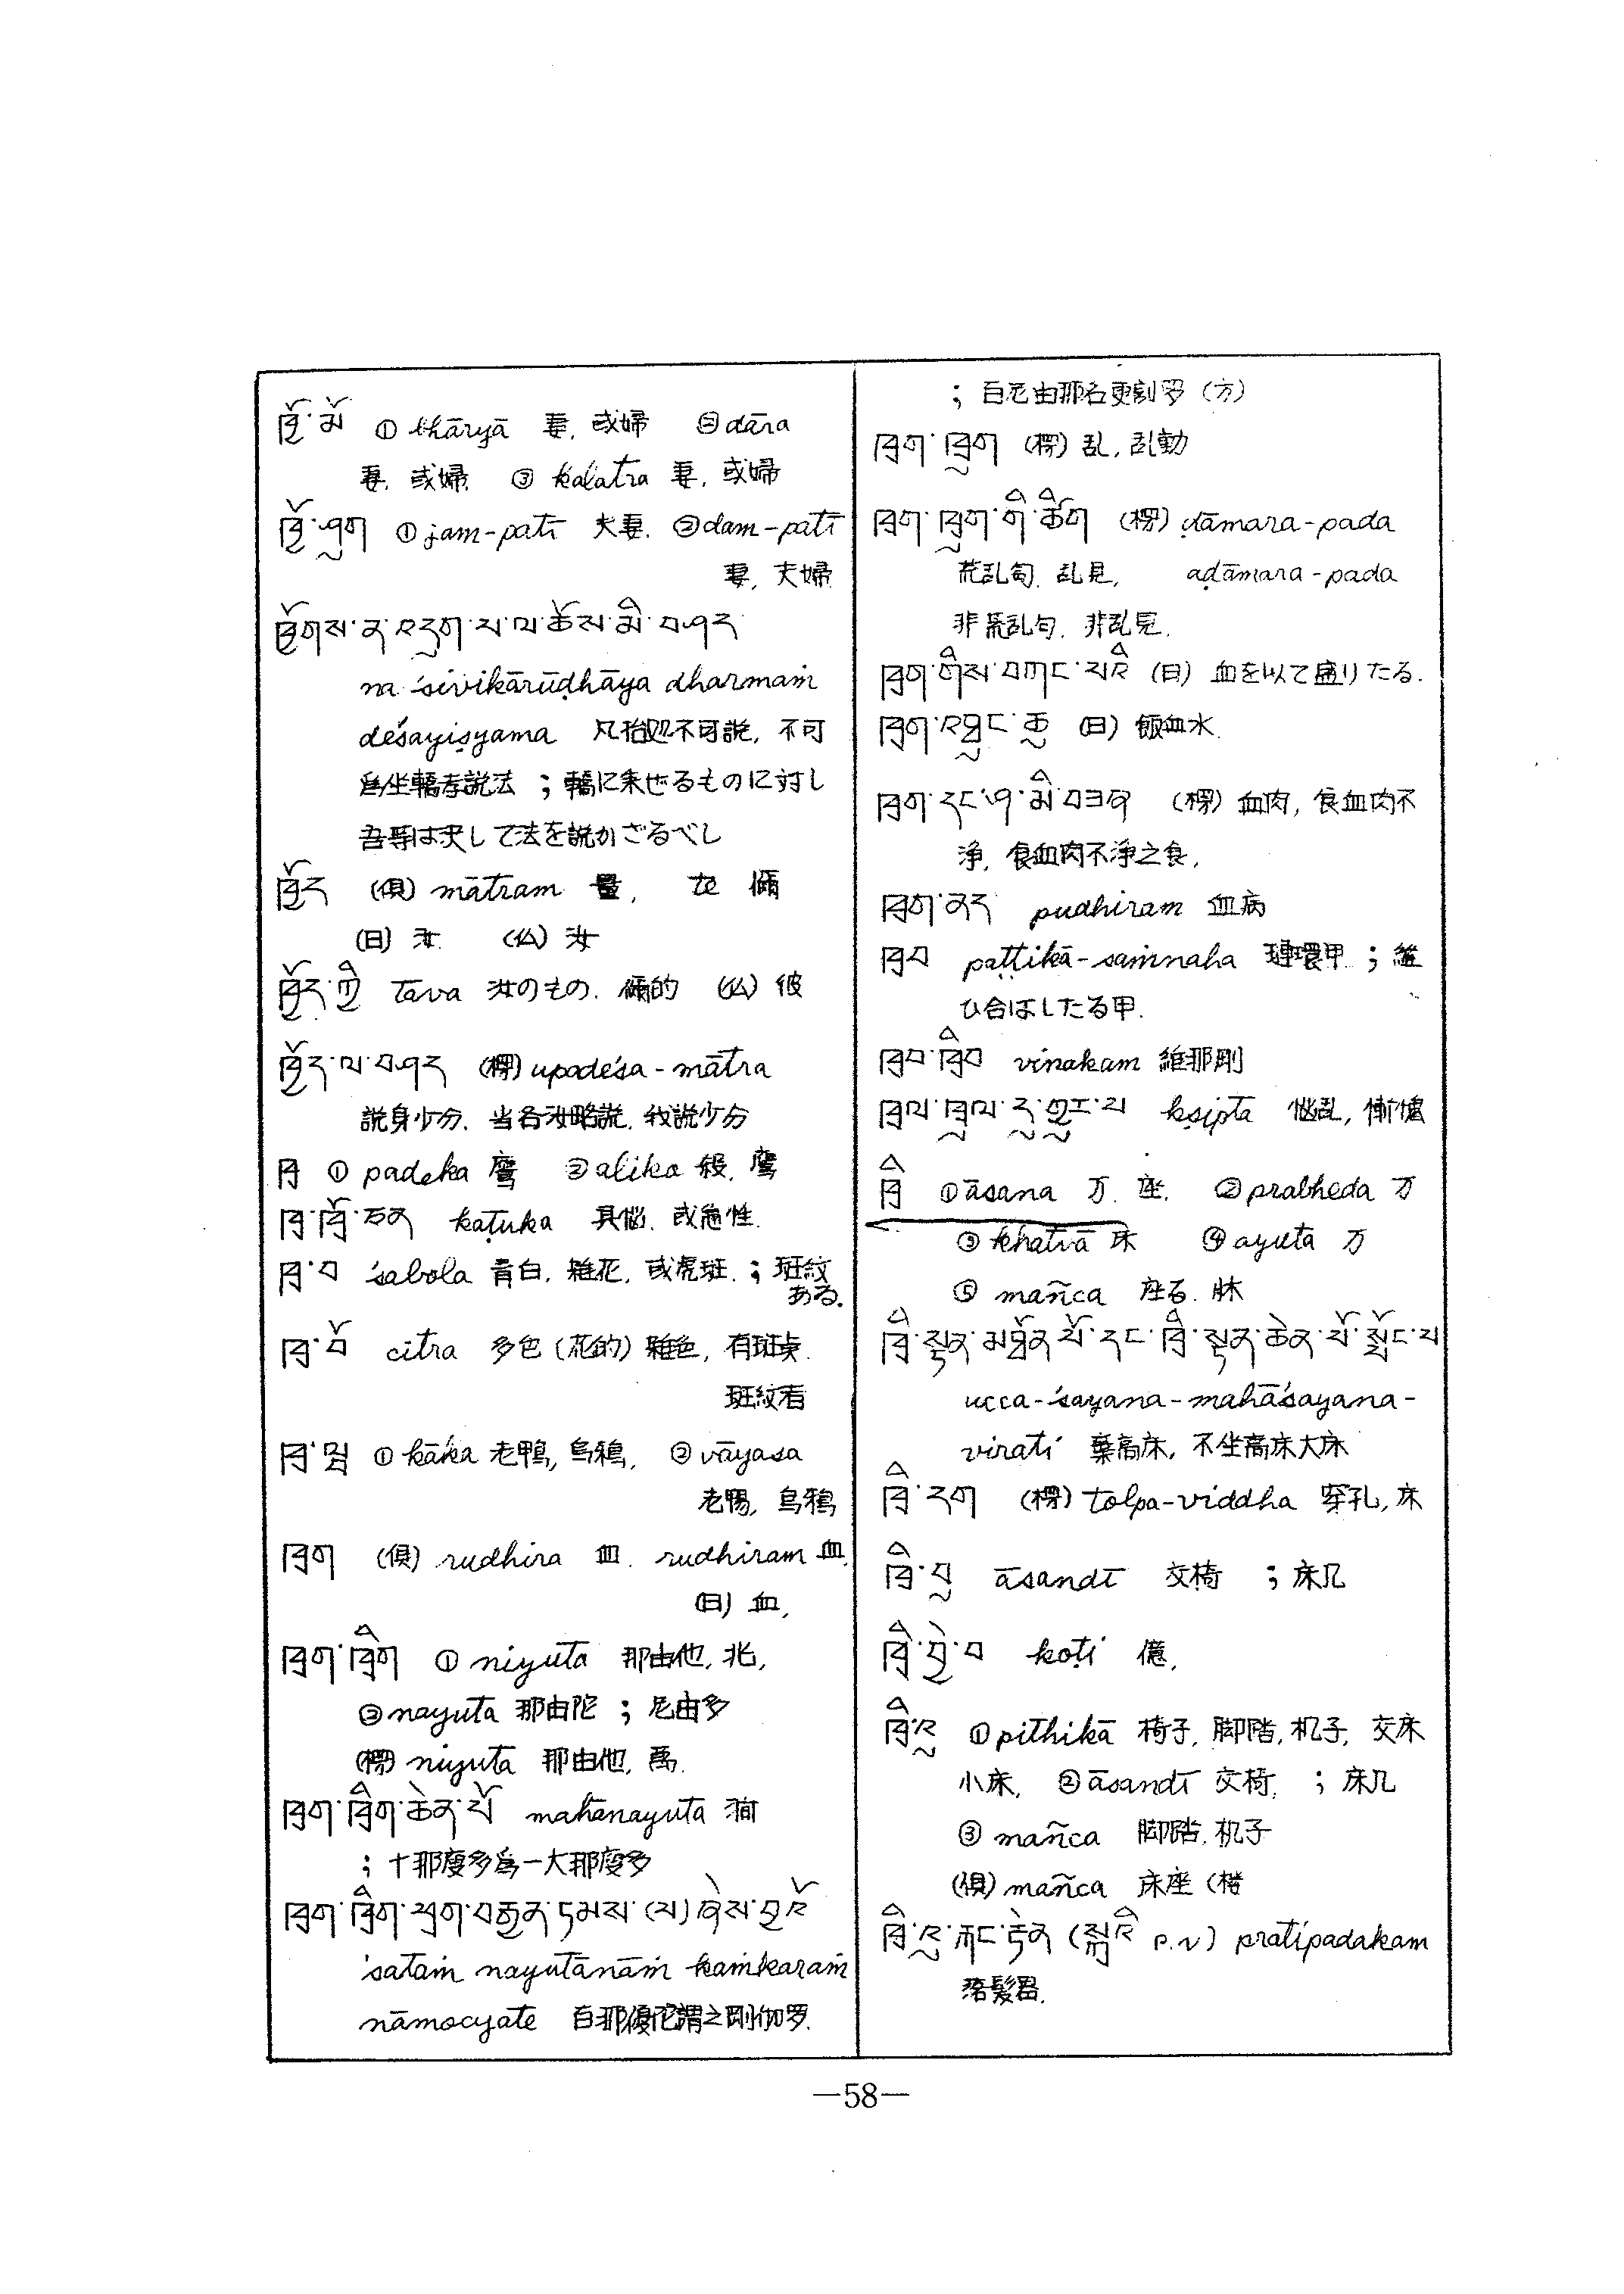 ཁྱོ་མོ ① bhāryā 妻, 或婦 ② dāra
妻, 或婦, ③ kalatra 妻, 或婦
ཁྱོ་ཤུག ① jam-patī 夫妻. ② dam-patī
妻, 夫婦
ཁྱོགས་ན་འདུག་པ་ལ་ཆོས་མི་བཤད
na śivikārūḍhāya dharmaṁ
deśayiṣyama 不可説, 不可
爲坐轎者説法 ; 轎に乗せるものに対し
吾等は決して法を説かざるべし
ཁྱོད (倶) mātram 量,
(日) 汝. (仏) 汝
ཁྱོད་ཀྱི tava 汝のもの. 儞的 (仏) 彼
ཁྱོད་ལ་བཤད (楞) upadeśa-mātra
説身少分. 当各汝略説. 我説少分
ཁྲ ① padeka 鷹 ② alika 鷹
ཁྲ་ཁྲོ་ཅན kaṭuka 具惱. 或急性.
ཁྲ་བ śabola 青白, 雜花, 或虎斑. ; 斑紋
ある.
ཁྲ་བོ citra 多色 (花的) 雜色, 有斑点.
斑紋者
ཁྲ་ལྟས ① kāka 老鴨, 烏鴉, ② vāyasa
老鴨, 烏鴉
ཁྲག (倶) rudhira 血. rudhiram 血,
(日) 血,
ཁྲག་ཁྲིག ① niyuta 那由他, 兆,
② nayuta 那由陀 ; 尼由多
(楞) niyuta 那由他, 萬.
ཁྲག་ཁྲིག་ཆེན་པོ mahānayuta 澗
; 十那廋多爲一大那廋多
ཁྲག་ཁྲིག་ཕྲག་བརྒྱན་དམས་(པ)ཞེས་བྱའོ
śataṁ nayutānāṁ kaṁkaraṁ
nāmocyate 百那優陀謂之剛伽罗.
; 百尼由那名更割罗 (方)
ཁྲག་ཁྲུག (楞) 乱, 乱動
ཁྲག་ཁྲུག་གི་ཚིག (楞) ḍāmara-pada
荒乱句. 乱見, aḍāmara-pada
非荒乱句. 非乱見.
ཁྲག་གིས་བཀང་པའི (日) 血を以て盛りたる.
ཁྲག་འཐུང་ཆུ (日) 飯血水.
ཁྲག་དང་ཤ་མི་བཟའ (楞) 血肉, 食血肉不
淨, 食血肉不淨之食,
ཁྲག་ནད pudhiram 血病
ཁྲབ paṭṭikā-saṁnaha 璉環甲 ; 縫
ひ合はしたる甲.
ཁྲབ་ཁྲིབ vinakam 維那剛
ཁྲལ་ཁྲུལ་དུ་གྱུར་པ kṣipta 惱乱, 慚愧
ཁྲི ① āsana 万. 座. ② prabheda 万
③ khatvā 床 ④ ayuta 万
⑤ mañca 座る. 牀
ཁྲི་སྟན་མཐོན་པོ་དང་ཁྲི་སྟན་ཆེན་པོ་སྤོང་བ
ucca-śayana-mahāśayana-
virati 棄高床, 不坐高床大床
ཁྲི་དག (楞) tolpa-viddha 穿孔, 床
ཁྲི་བུ āsandī 交椅 ; 床几
ཁྲི་བྱེ་བ koṭi 億,
ཁྲི་འུ ① pithikā 椅子, 脚踏, 机子, 交床
小床, ② āsandī 交椅, ; 床几
③ mañca 脚踏, 机子
(倶) mañca 床座 (楼
ཁྲི་འུ་རྐང་རྟེན (སྐྲའི P.N) pratipadakam
落髪器.
—58—